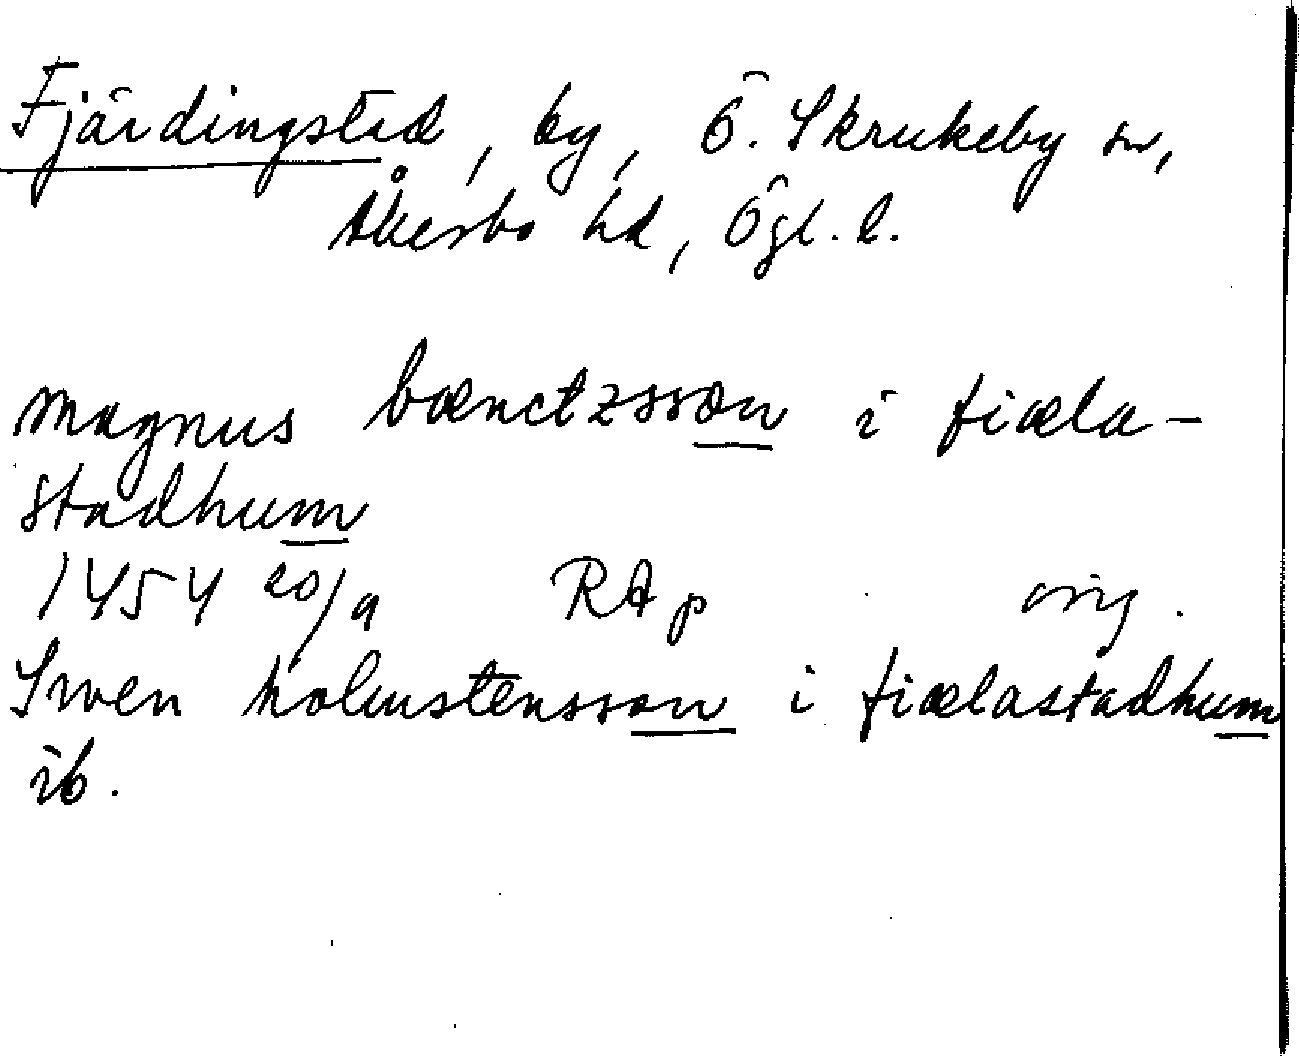 Fjärdingstad, by, Ö. Skrukeby sn,
Åkerbo hd, Ögl. l.
magnus bænctzsson i fiæla-
stadhum
1454 20/9 RAp orig.
Swen holmstensson i fiælastadhum
ib.